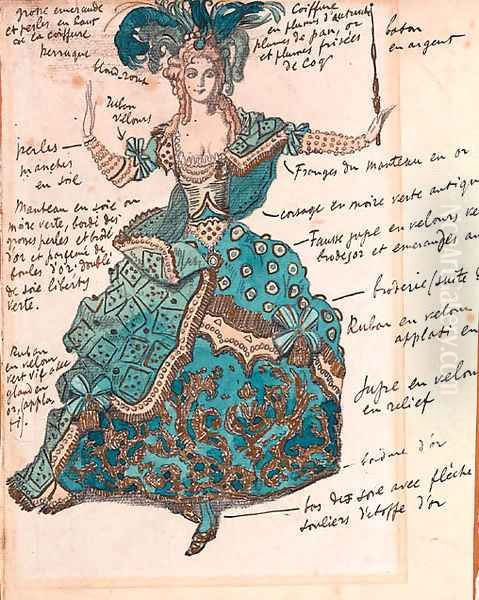 grosse emeraude
et perles en haut
de la coiffure
perruque
blond roux
Coiffure
en plumes d'autruche
plumes de paon or
et plumes frisées
de coq
baton
en argent
Ruban
velours
perles
manches
en soie
Franges du manteau en or
Manteau en soie ou
moire verte, bordé des
grosses perles et brodé
d'or et parsemé de
boules d'or doublé
de soie liberty
verte.
corsage en moire verte antique
Fausse jupe en velours ve
brodée or et emeraudes
broderie (suite
Ruban en velou
applati en
Ruban
en velour
vert vif avec
gland en
or, appla
ti.
Jupe en velou
en relief
bordure d'or
bas de soie avec flèche
souliers d'étoffe d'or